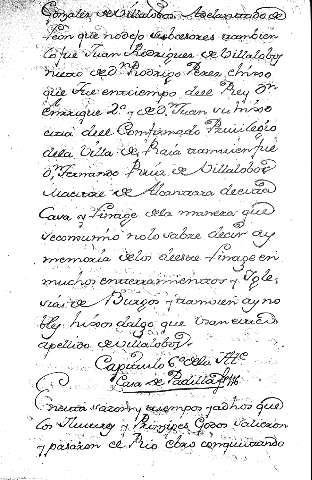 Gonzales de Villalobos Adelantado de
Leon que no dejo subcesores tambien
lo fue Juan Rodriguez de Villalobos
nieto de Dn Rodrigo Perez el hizo
que fue en tiempo del Rey Dn
Enrrique 2º y de Dn Juan su hijo
esta del Comfirmado Previlegio
de la Villa de tamvien fue
Dn Fernando Ruiz de Villalobos
Maestre de Alcantara de esta
Casa y Linage de la manera que
se comumio no lo sabre decir ay
memoria de los de este Linage en
muchos enterramientos y Igle
sias de Burgos y tamvien ay no
bles hijos dalgo que tran este
apellido de Villalobos
Capitulo 6º de la
Casa de Padilla
En esta sazon y tiempos ya dhos que
los Reyes y Principes Godos salieron
y pasaron el Rio Ebro conquistando